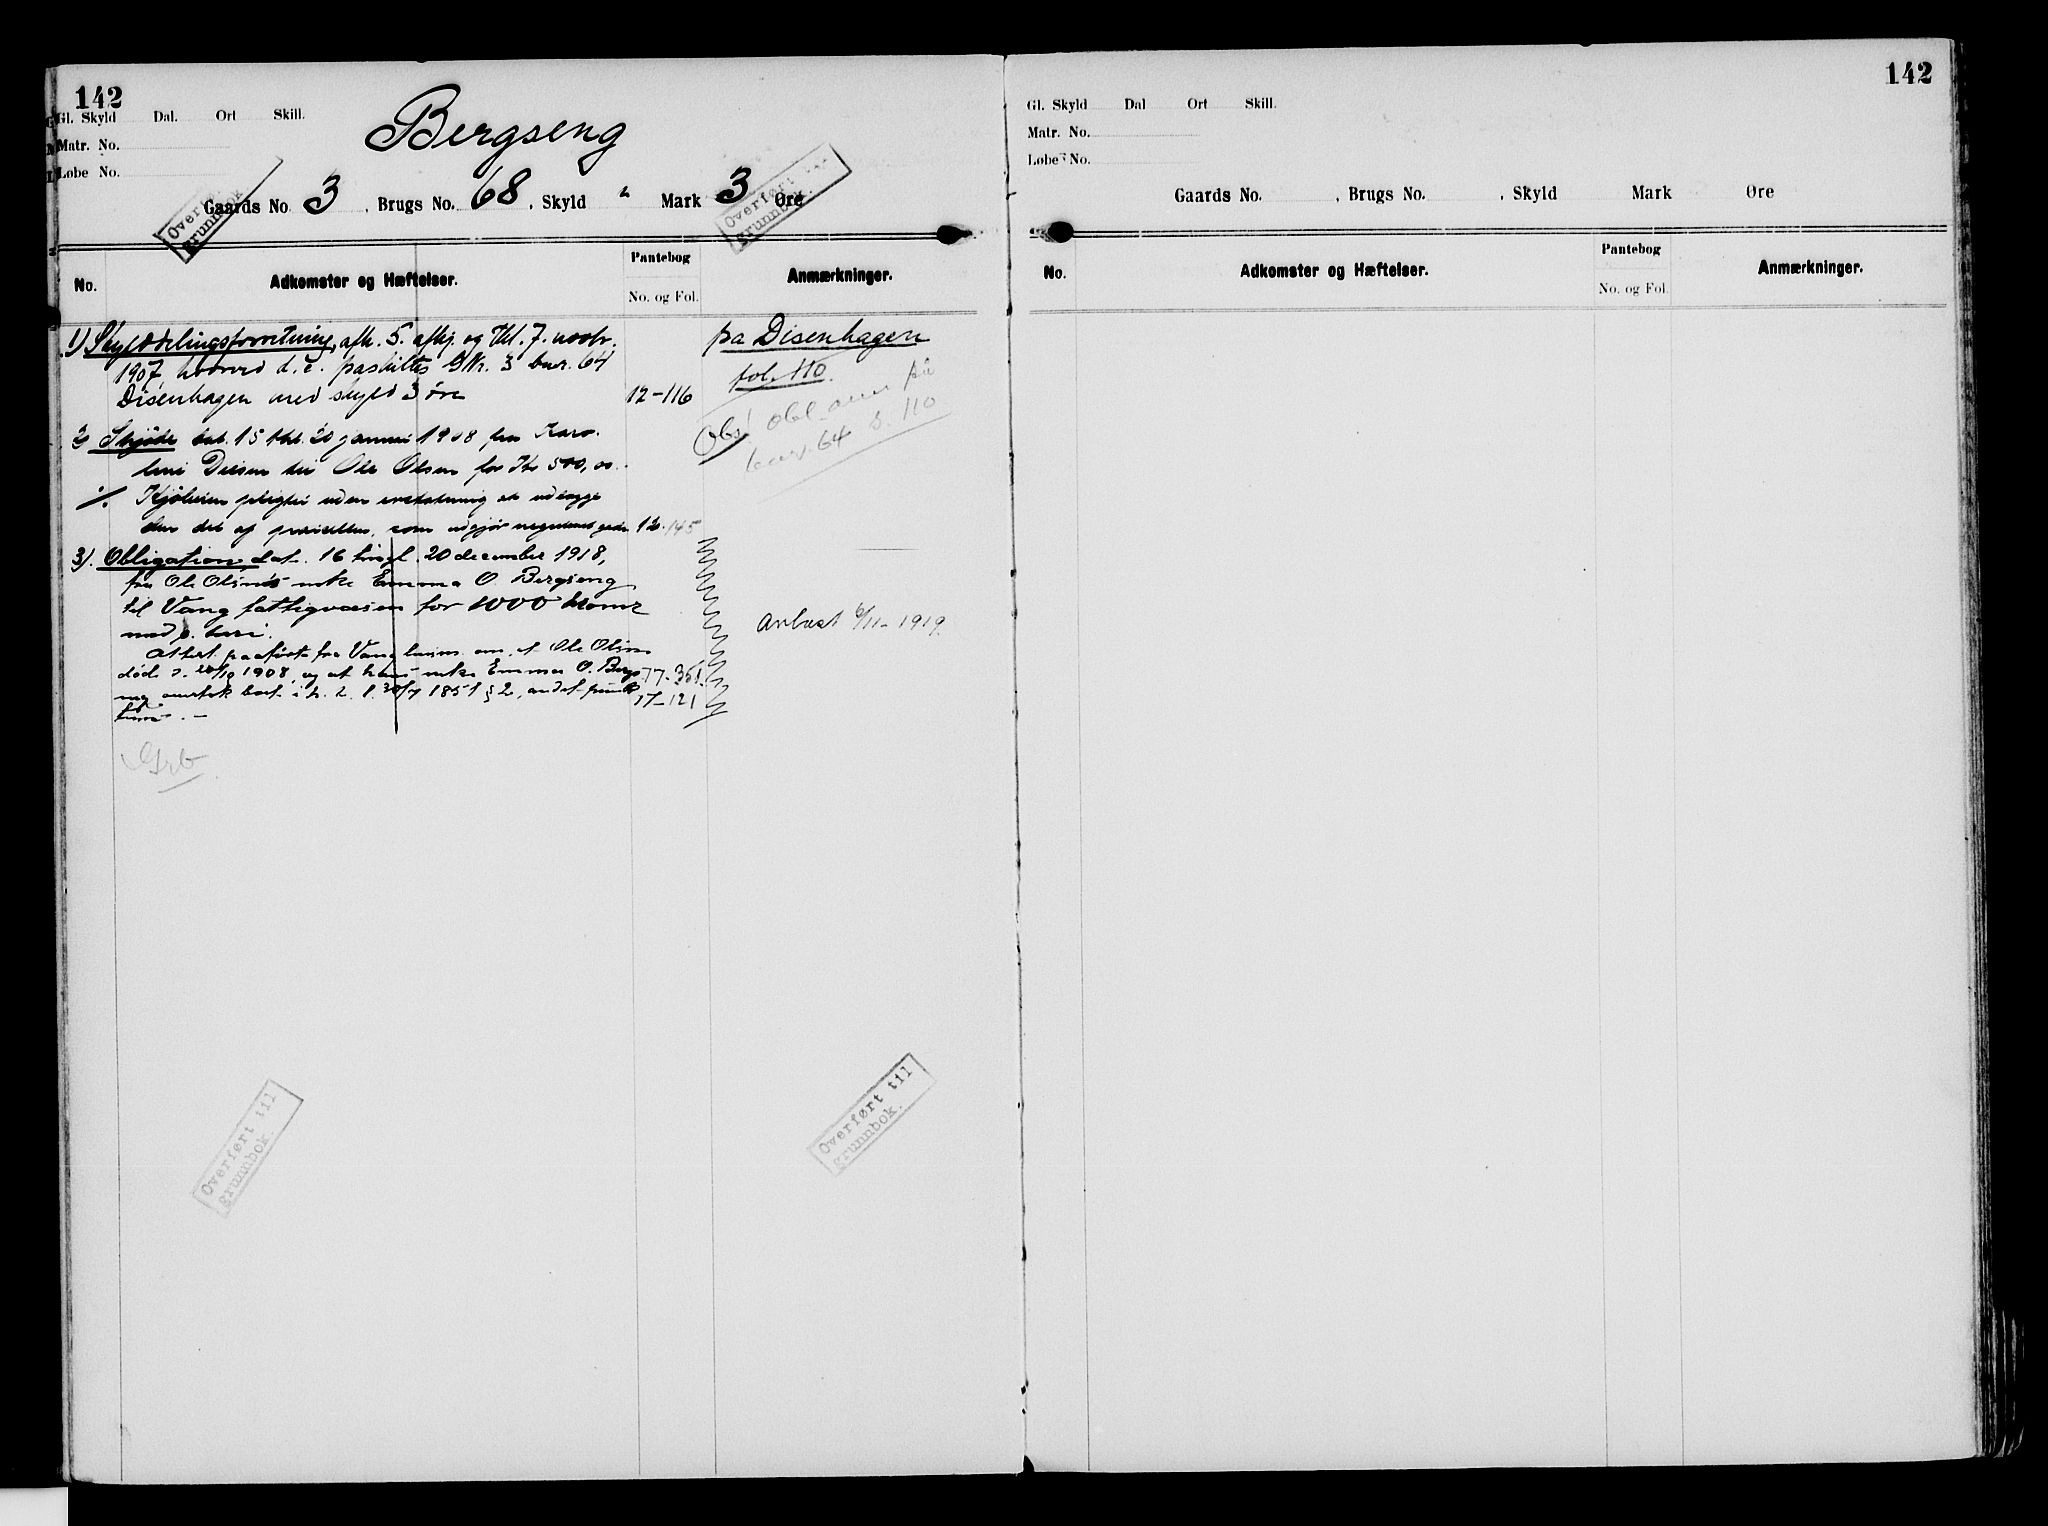 142
Gl. Skyld Dal. Ort Skill.
Matr. No.
Løbe No.
Bergseng
Gaards No 3, Brugs No. 68, Skyld " Mark 3 Øre
Overført til
grunnbok.
No.
Adkomster og Hæftelser.
Pantebog
No. og Fol.
Anmærkninger.
1) Skylddelingsforretning, afh. 5. afhj. og thl. 7. novbr.
1907 hvorved d. e. fraskiltes GNr. 3 bnr. 64
Disenhagen med skyld 3 øre 12-116
på Disenhagen
fol. 110.
Obs! obl. anm på
bnr. 64 s. 110
2) Skjøde dat. 15 thl. 20 januar 1908 fra Karo-
line Disen til Ole Olsen for Kr 500,00.
./. Kjøberen pligter uden erstatning at udlægge
den del af parcellen, som udgjør 12-145
3). Obligation dat. 16 tingl. 20 december 1918,
fra Ole Olsens enke Emma O. Bergseng
til Vang fattigvæsen for 1000 kroner
med p.
Avlæst 6/11-1919.
Attest paaført fra Vang om at Ole Olsen
døde d. 1908, og at hans enke Emma O. Bergs- 17-361
eng 1851 § 2, andet punk- 17-121
tum. -
Grb
Overført til
grunnbok.
Overført til
grunnbok.
142
Gl. Skyld Dal Ort Skill.
Matr. No.
Løbe No.
Gaards No. , Brugs No. , Skyld Mark Øre
No.
Adkomster og Hæftelser.
Pantebog
No. og Fol.
Anmærkninger.